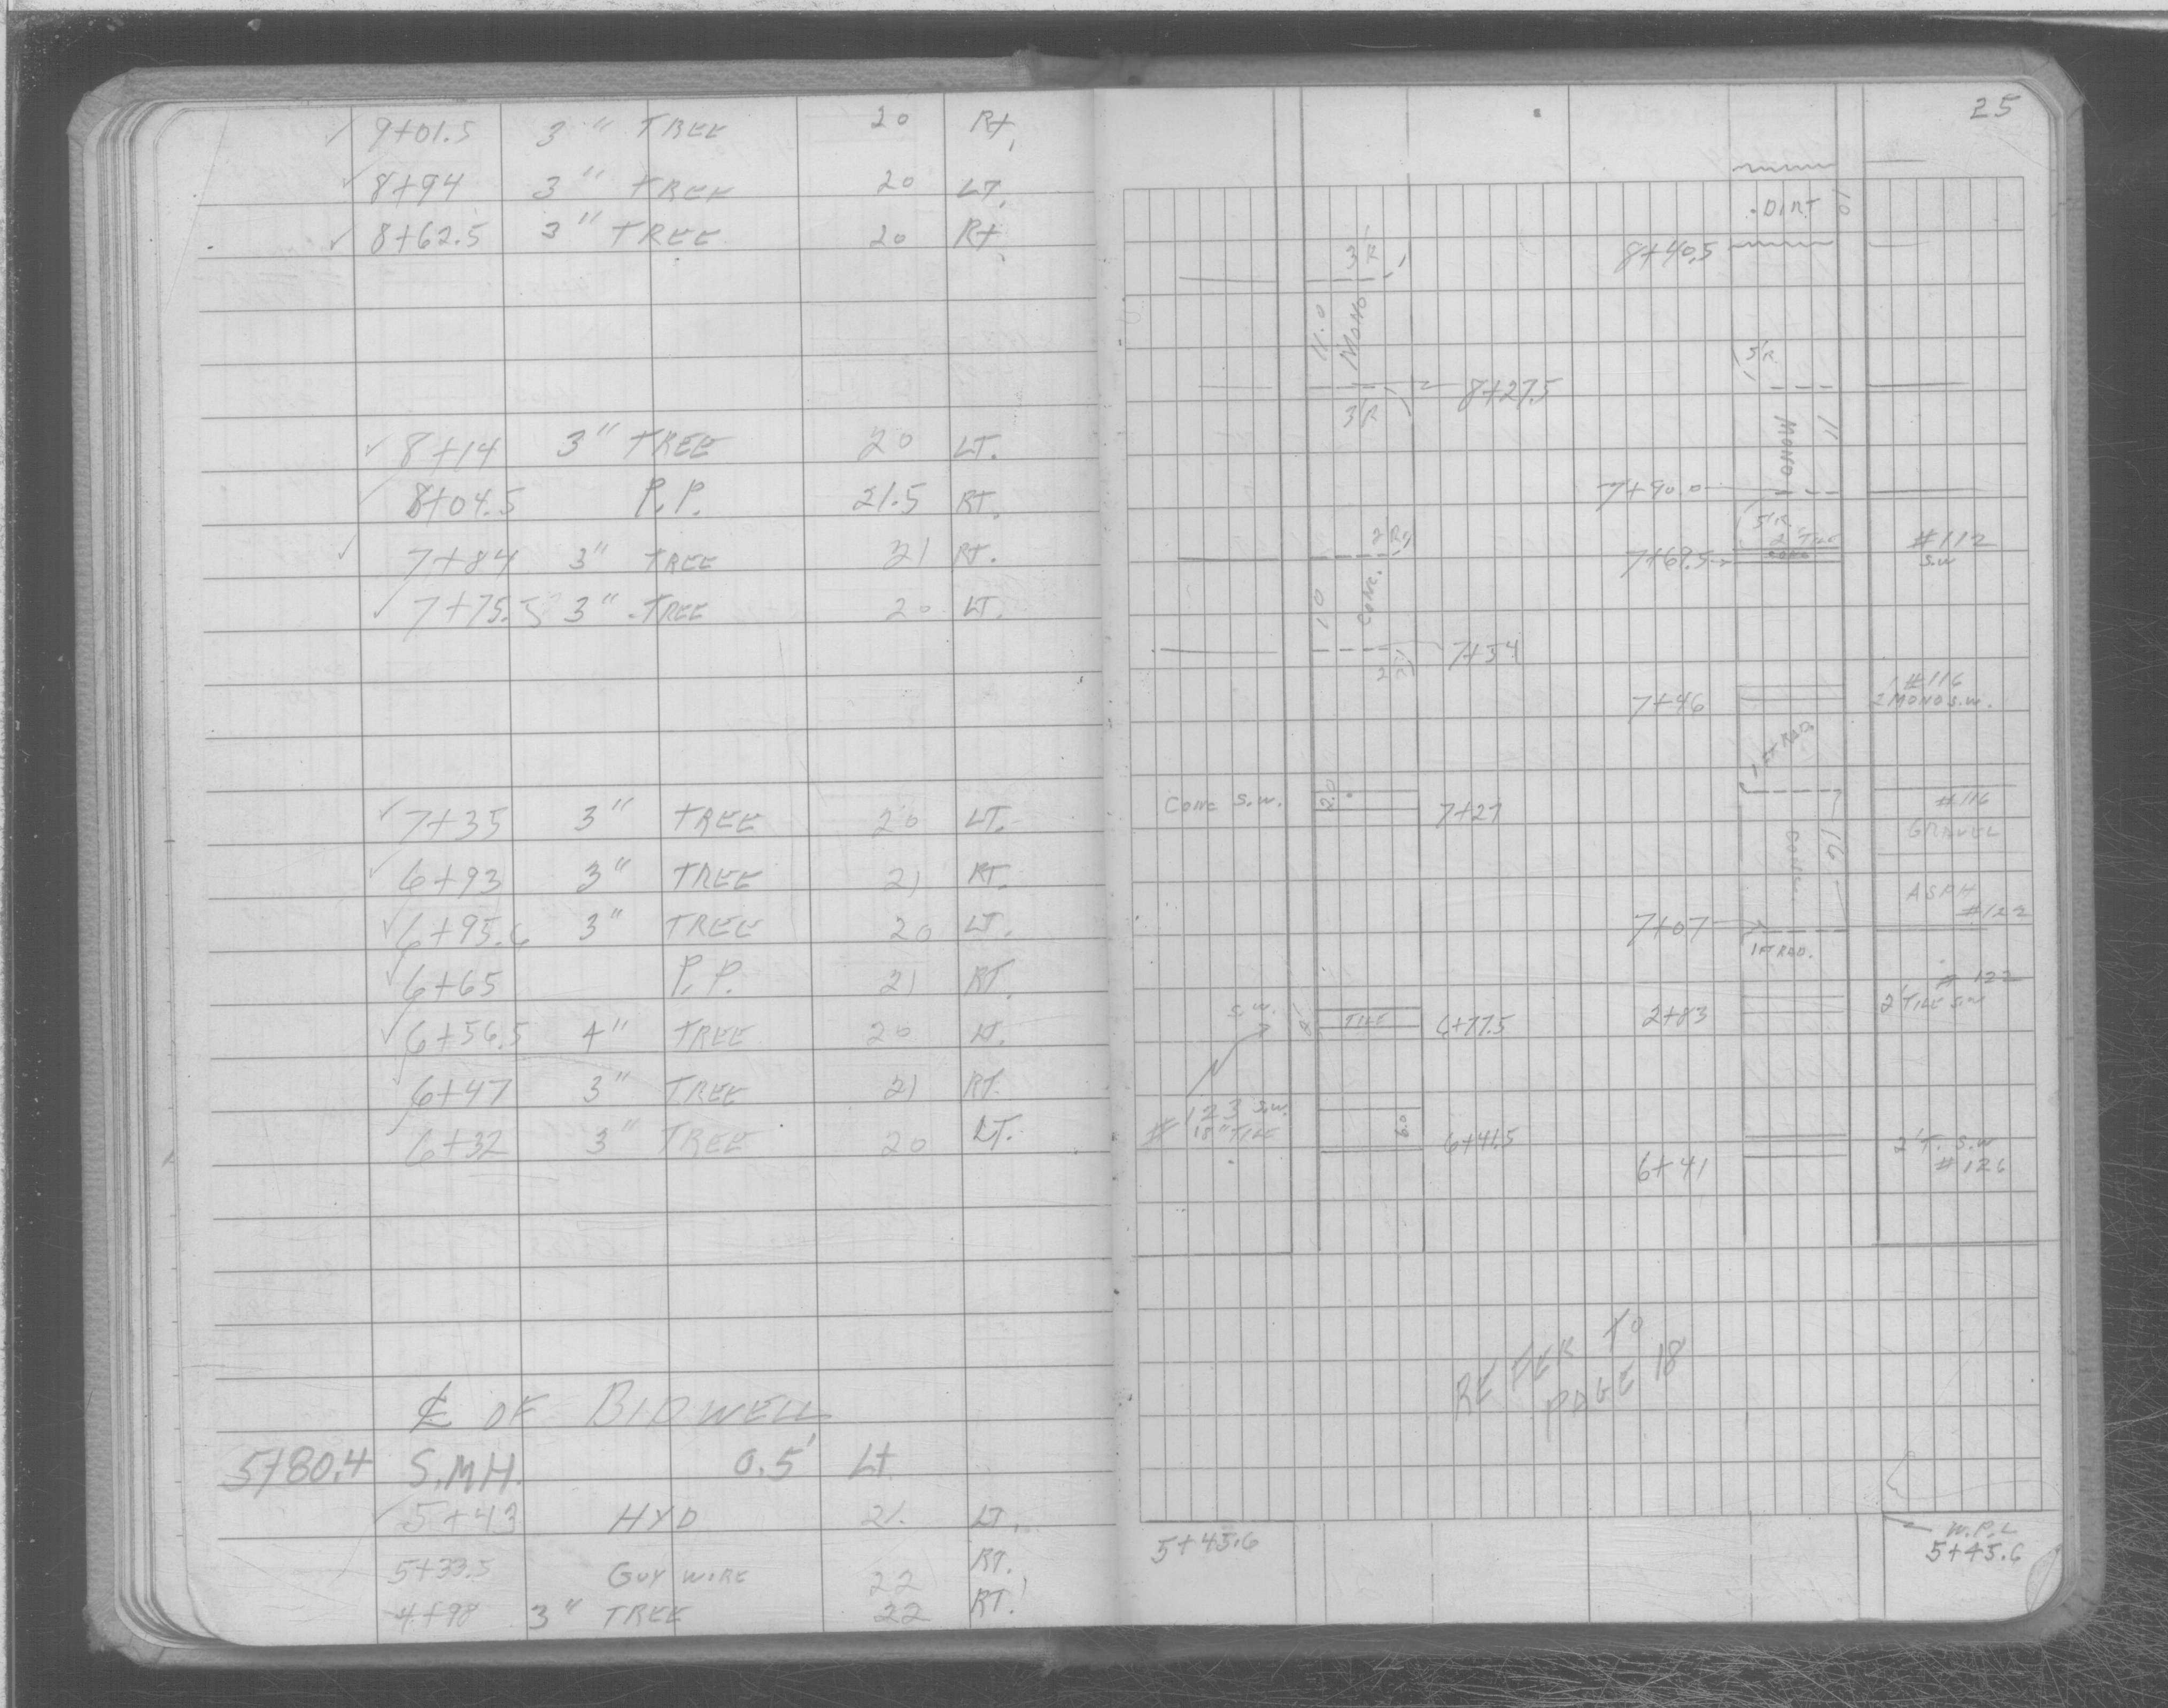 9+01.5 3" TREE 20 Rt.
8+94 3" TREE 20 LT.
8+62.5 3" TREE 20 Rt
8+14 3" TREE 20 LT.
8+04.5 P.P. 21.5 RT.
7+84 3" TREE 21 RT.
7+75.5 3" TREE 20 LT.
7+35 3" TREE 20 LT.
6+93 3" TREE 21 RT.
6+95.6 3" TREE 20 LT.
6+65 P.P. 21 RT.
6+56.5 4" TREE 20 LT.
6+47 3" TREE 21 RT.
6+32 3" TREE 20 LT.
℄ OF BIDWELL
5+80.4 S.M.H. 0.5' Lt
5+43 HYD 21. LT.
5+33.5 GUY WIRE 22 RT.
4+98 3" TREE 22 RT.
25
DIRT 10
8+40.5
3 R
11.0 MONO
8+27.5
3 R
5'R.
MONO 11
7+90.0
5'R.
2' TILE
7+69.5
#112
S.W
10 CONC.
7+54
7+46
#116
2 MONO S.W.
1 FT RAD.
CONC S.W. 2.0 7+27
#116
GRAVEL
16
ASPH
#122
7+07
1 FT RAD.
S.W. TILE 6+77.5
2+83
# 122
2' TILE S.W
# 123 S.W.
18" TILE
6+41.5
6+41
2' T. S.W
# 126
REFER TO
PAGE 18
5+45.6
W.P.L
5+45.6